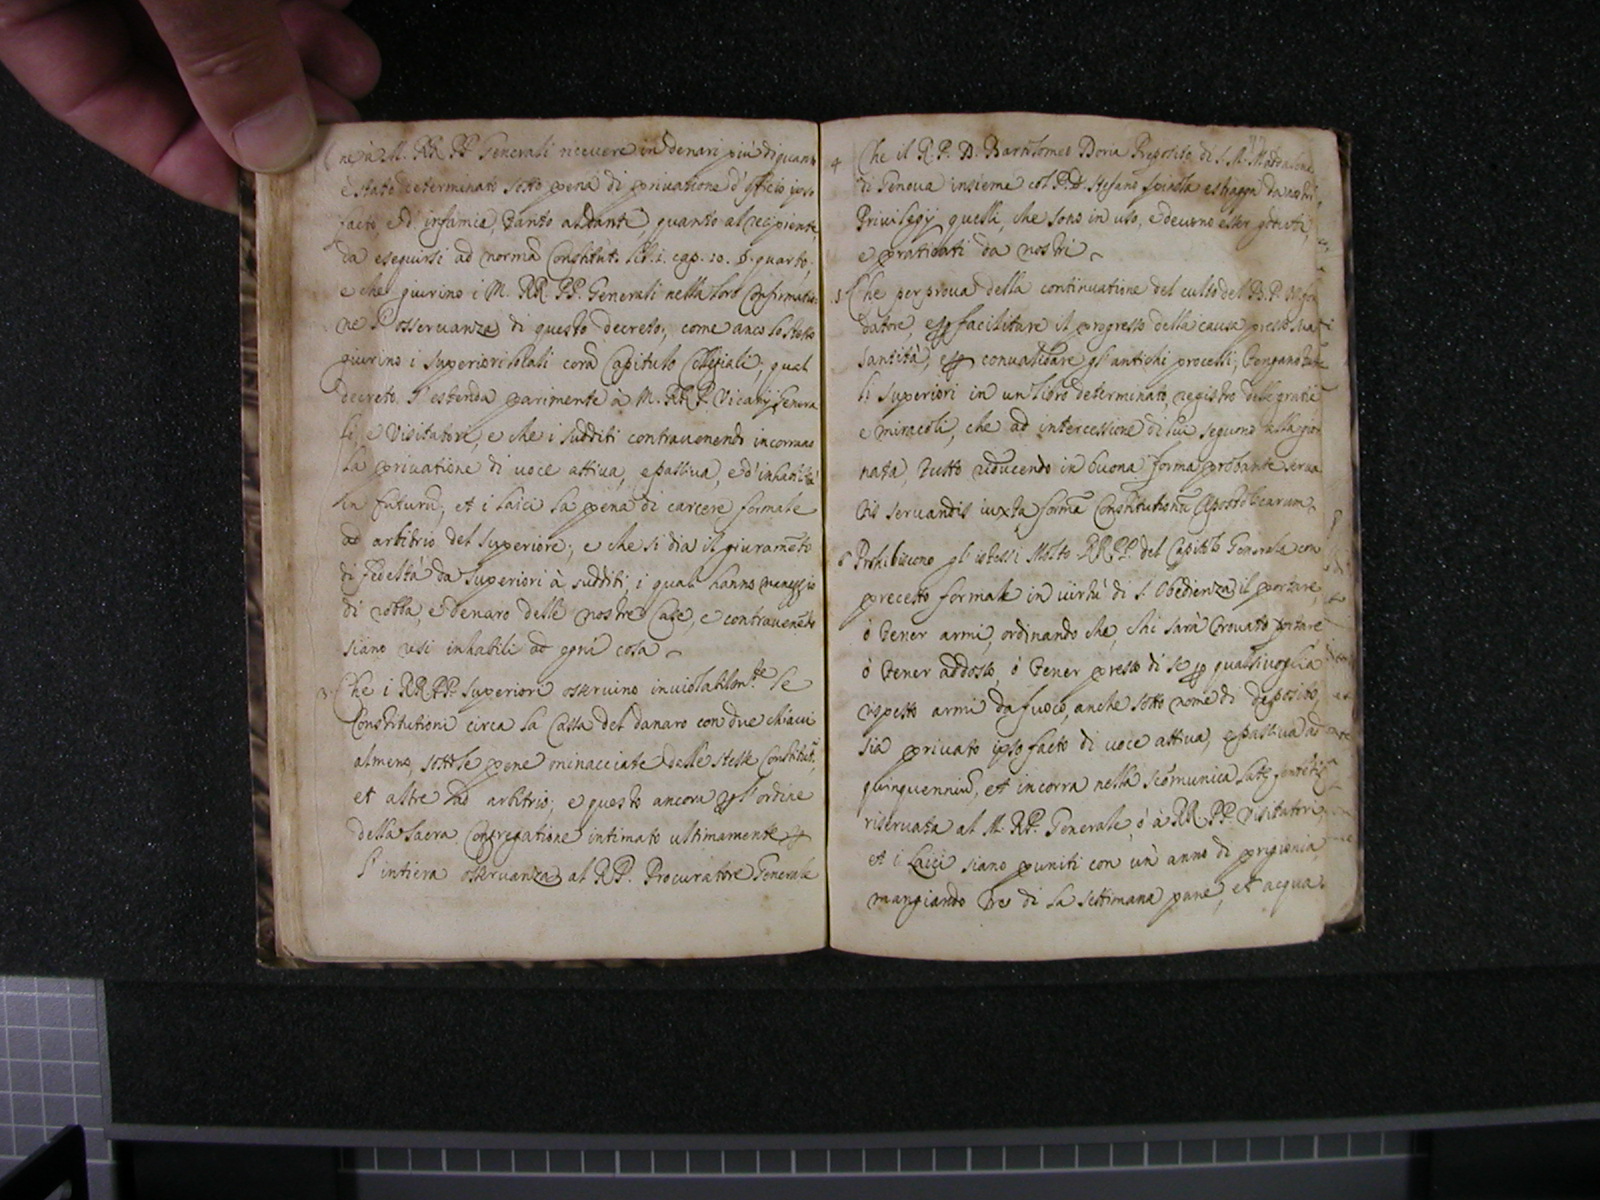 ne à M. RR. PP. Generali ricevere in denari più di quanto
è stato determinato sotto pena di privatione d'officio ipso
facto, e d'infamia, tanto al dante, quanto al recipiente,
da eseguirsi ad normã Constitut. lib. 2. cap. 20. §. quarto,
e che giurino i M. RR. PP. Generali nella loro Confirmatio-
ne l'osservanza di questo decreto; come anco lo stesso
giurino i Superiori locali corã Capitulo Collegiali; qual
decreto s'estenda parimente à M. RR. P. Vicarij Genera
li, e Visitatore, e che i sudditi contravenendo incorrano
la privatione di voce attiva, e passiva, e d'inhabilità
in futurũ; et i laici la pena di carcere formale
ad arbitrio del Superiore; e che si dia il giuramẽto
di fedeltà da Superiori à sudditi i quali hanno maneggio
di robba, e denaro delle nostre Case, e contravenẽdo
siano resi inhabili ad ogni cosa
3 Che i RR. PP. Superiori osservino inviolabilm.te le
Constitutioni circa la Cassa del danaro con due chiavi
almeno, sotto le pene minacciate dalle stesse Constitut.,
et altre ad arbitrio; e questo ancora ꝑ l'ordine
della Sacra Congregatione intimato ultimamente ꝑ
l'intiera osservanza al R.P. Procuratore Generale
4 Che il R. P. D. Bartolomeo Doria Preposito di S. M. Madalena
di Genova insieme col P. D. Stefano Spinola estragga da nostri
Privilegij quelli, che sono in uso, e devono esser goduti,
e praticati da nostri
5 Che per prova della continuatione del culto del B. P. Nro fon
datore, e ꝑ facilitare il progresso della causa presso sua
Santità, e ꝑ convalidare gl'antichi processi, tengano tutti
li Superiori in un libro determinato, registro delle gratie
e miracoli, che ad intercessione di lui seguono alla gior
nata, tutto riducendo in buona forma probante serva
tis servandis iuxta formã Constitutionũ Apostolicarum
6 Prohibiscono gl'istessi Molto RR. PP. del Capitolo Generale con
precetto formale in virtù di S. Obedienza il portare,
ò tener armi, ordinando che, chi sarà trovato portare
ò tener addosso, ò tener presso di se ꝑ qualsivoglia
rispetto armi da fuoco, anche sotto nome di deposito,
sia privato ipso facto di voce attiva, e passiva ad
quinquenniũ, et incorra nella scõmunica latę sententię
riservata al M. R. P. Generale, ò à RR. PP. Visitatori,
et i laici siano puniti con un anno di prigionia,
mangiando tre dì la settimana pane, et acqua.